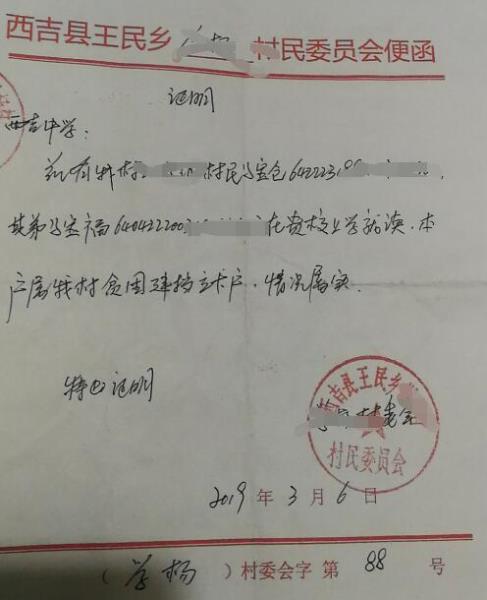 西吉县王民乡 村民委员会便函
证明
西吉中学:
兹有我村 村民马宝仓642223198
其弟马宝福6404222003 在贵校上学就读.本
户属我村贫困建档立卡户.情况属实.
特此证明
西吉县王民乡
村委会
村民委员会
2019年3月6日
(学杨)村委会字第88号